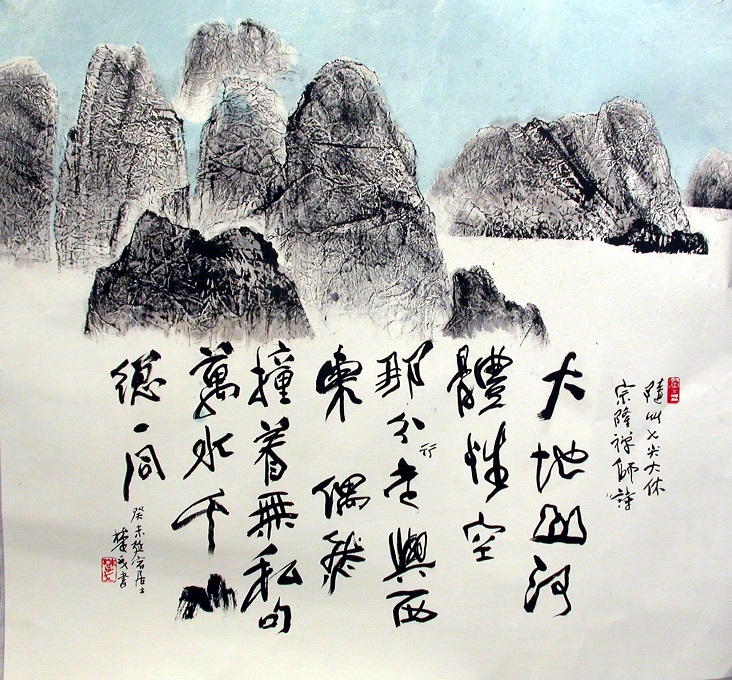 隨州七尖大休
宗隆禪師詩
大地山河
體性空
那分與西
東 偶然
撞着無私句
萬水千山
總一同
癸未居士
楚戈書